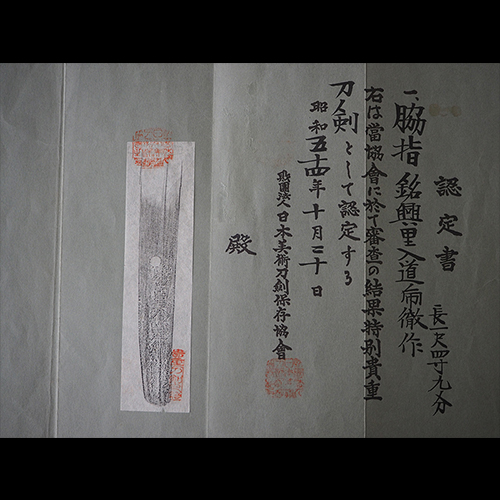 認定書
一、脇指 銘興里入道乕徹作
長一尺四寸九分
右は當協會に於て審査の結果特別貴重
刀剣として認定する
昭和五十四年十月三十日
財團法人日本美術刀剣保存協會
殿